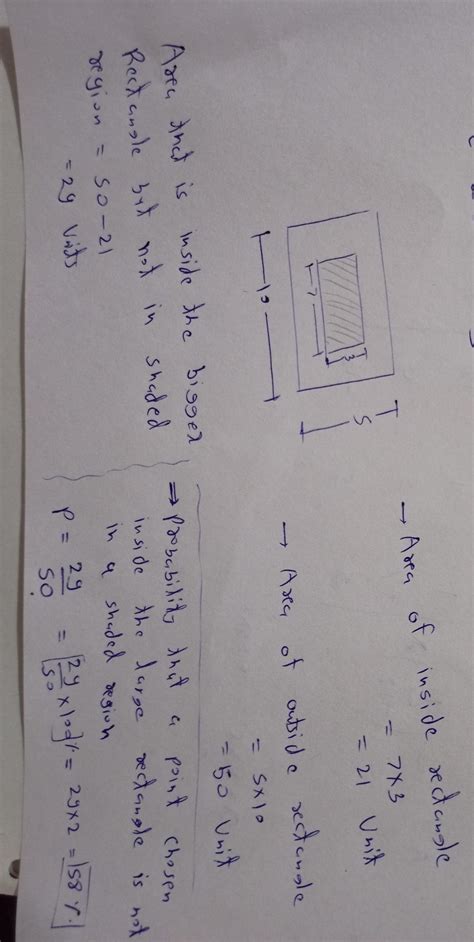 → Area of inside rectangle
= 7x3
= 21 Unit
→ Area of outside rectangle
= 5x10
= 50 Unit
5
3
7
10
Area that is inside the bigger
Rectangle but not in shaded
region = 50-21
= 29 Units
⇒ Probability that a point chosen
inside the large rectangle is not
in a shaded region
P = 29/50 = [29/50 x100]% = 29x2 = 58%